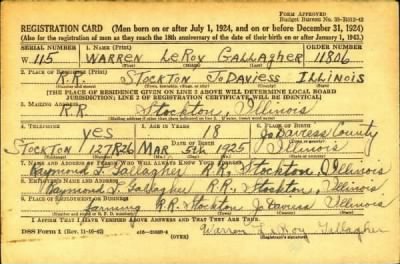 FORM APPROVED
Budget Bureau No. 33-R012-42
REGISTRATION CARD (Men born on or after July 1, 1924, and on or before December 31, 1924)
(Also for the registration of men as they reach the 18th anniversary of the date of their birth on or after January 1, 1943.)
SERIAL NUMBER 1. NAME (Print) ORDER NUMBER
W 115 WARREN LeRoy GALLAGHER 11806
2. PLACE OF RESIDENCE (Print)
R.R. STOCKTON JoDAVIESS ILLINOIS
[THE PLACE OF RESIDENCE GIVEN ON LINE 2 ABOVE WILL DETERMINE LOCAL BOARD
JURISDICTION; LINE 2 OF REGISTRATION CERTIFICATE WILL BE IDENTICAL]
3. MAILING ADDRESS
R.R. Stockton, Illinois
4. TELEPHONE 5. AGE IN YEARS
yes 18 JoDaviess County
STOCKTON 127R26 DATE OF BIRTH Illinois
MAR 5th 1925
7. NAME AND ADDRESS OF PERSON WHO WILL ALWAYS KNOW YOUR ADDRESS
Raymond L. Gallagher R.R. Stockton, Illinois
8. EMPLOYER'S NAME AND ADDRESS
Raymond L. Gallagher R.R. Stockton, Illinois
9. PLACE OF EMPLOYMENT OR BUSINESS
Farming R.R. Stockton Jo Daviess Illinois
I AFFIRM THAT I HAVE VERIFIED ABOVE ANSWERS AND THAT THEY ARE TRUE.
DSS Form 1 (Rev. 11-16-42) (OVER) Warren LeRoy Gallagher